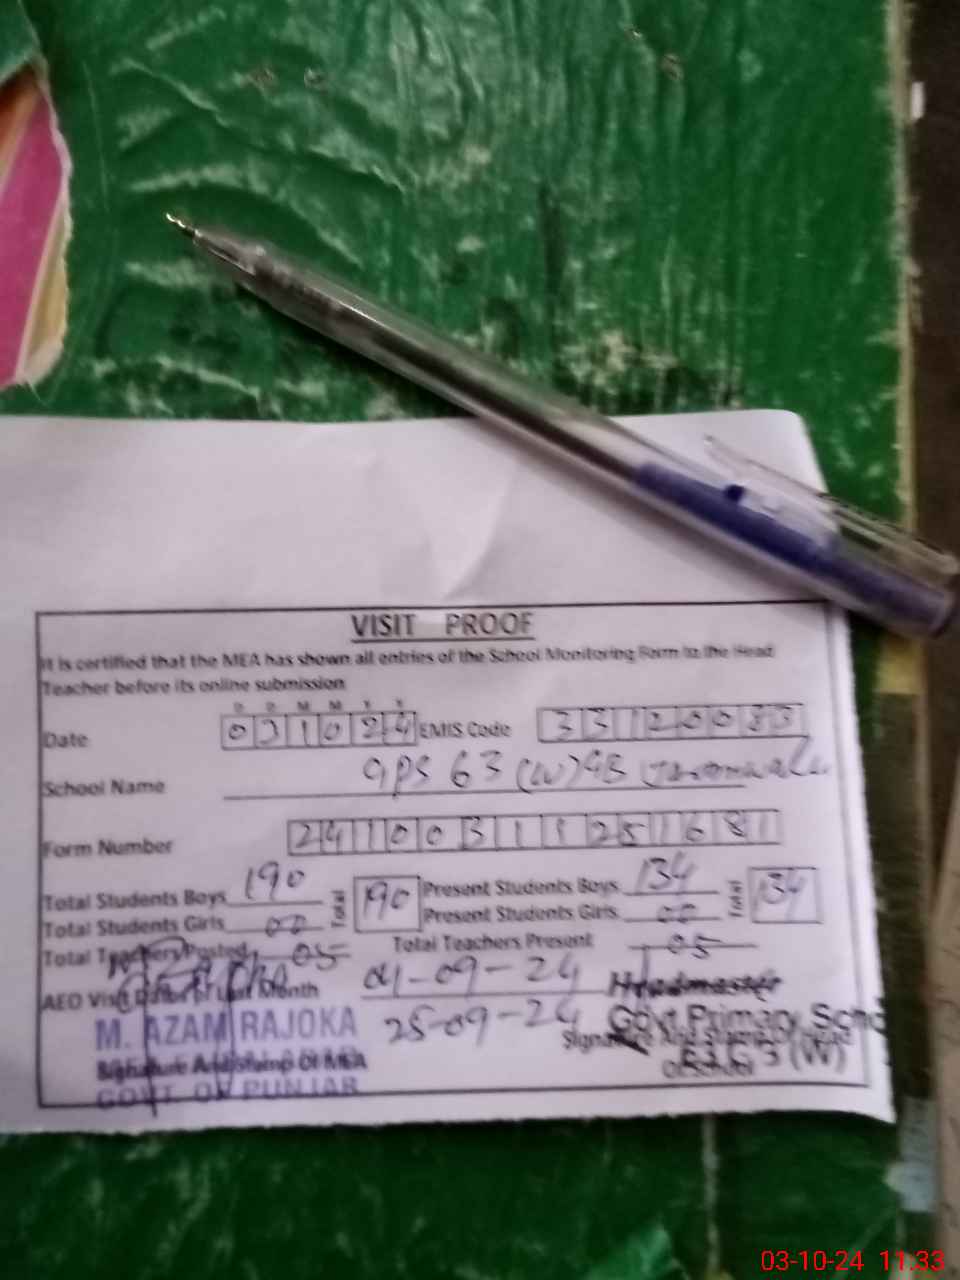 VISIT PROOF
It is certified that the MEA has shown all entries of the School Monitoring Form to the Head
Teacher before its online submission
D D M M Y Y
Date 031024 EMIS Code 33120083
School Name GPS 63 (W) GB Jaranwala
Form Number 24100311251681
Total Students Boys 190 Total 190 Present Students Boys 134 Total 134
Total Students Girls 00 Present Students Girls 00
Total Teachers Posted 05 Total Teachers Present 05
AEO Visit Dates of Last Month 04-09-24 Headmaster
M. AZAM RAJOKA 25-09-24 Govt Primary Scho
Signature And Stamp Of MEA Signature And Stamp Of Head
GOVT OF PUNJAB Of School
03-10-24 11:33